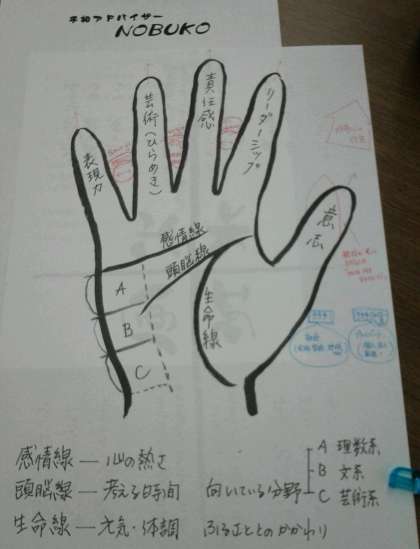 手相アドバイザー
NOBUKO
表現力
芸術(ひらめき)
責任感
リーダーシップ
意志
感情線
頭脳線
生命線
A
B
C
感情線 — 心の熱さ
頭脳線 — 考える時間
生命線 — 元気・体調
向いている分野
A 理数系
B 文系
C 芸術系
ふるさととのかかわり